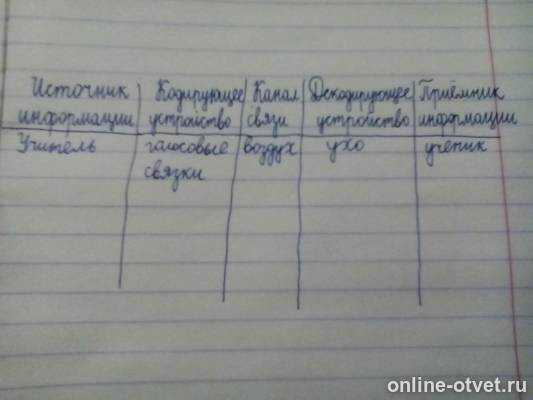 Источник Кодирующее Канал Декодирующее Приёмник
информации устройство связи устройство информации
Учитель голосовые воздух ухо ученик
связки
online-otvet.ru